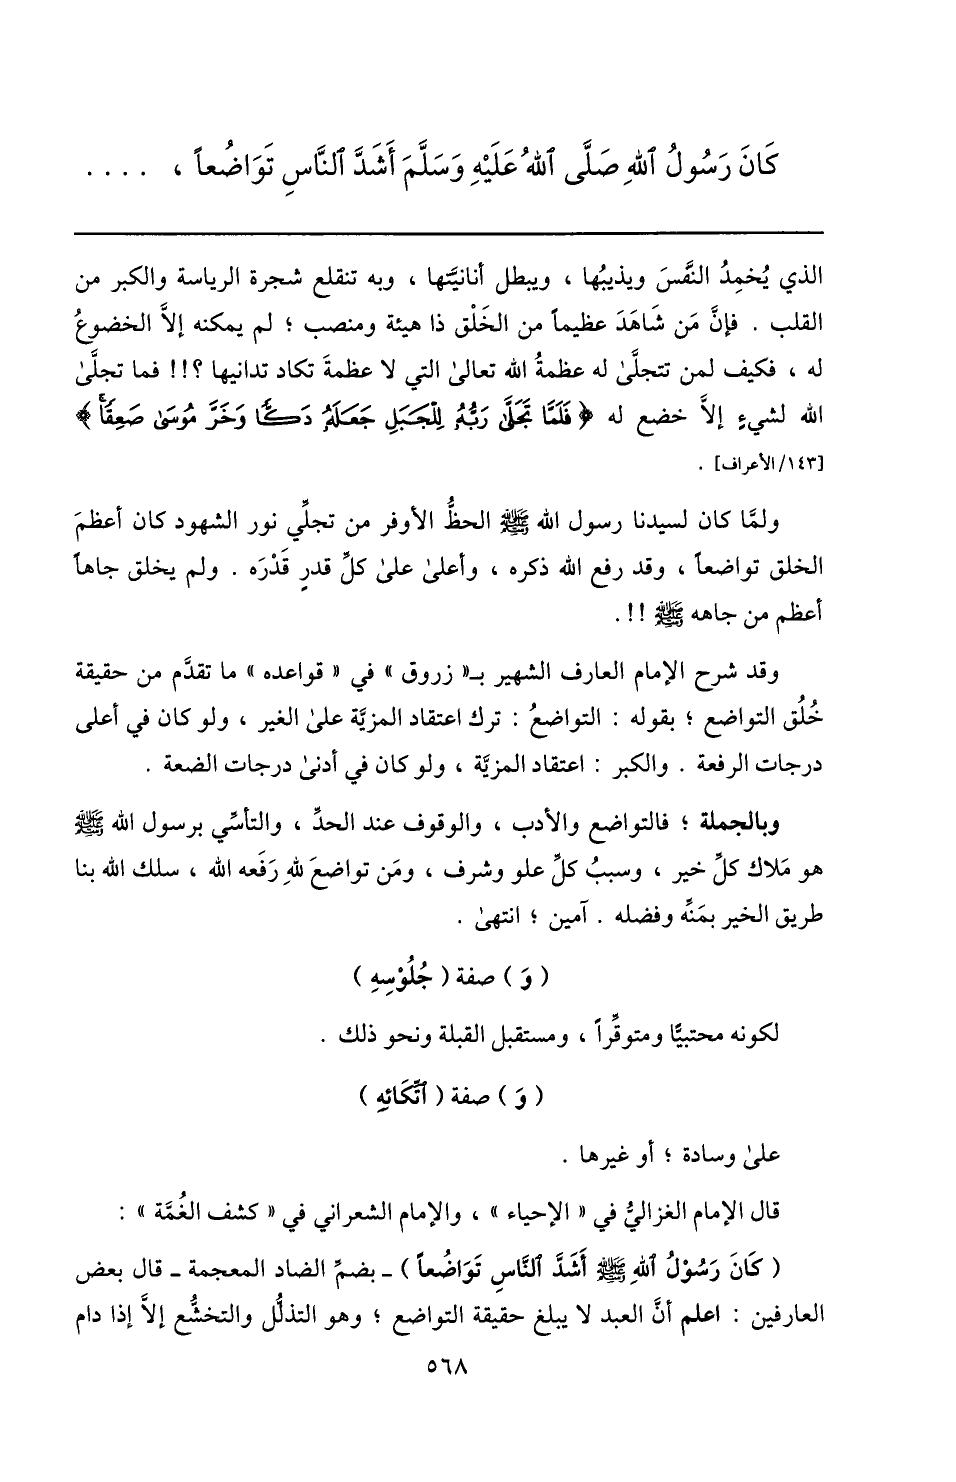 كَانَ رَسُولُ ٱللهِ صَلَّى ٱللهُ عَلَيْهِ وَسَلَّمَ أَشَدَّ ٱلنَّاسِ تَوَاضُعاً ، . . . .
الذي يُخمِدُ النَّفسَ ويذيبُها ، ويبطل أنانيَّتها ، وبه تنقلع شجرة الرياسة والكبر من
القلب . فإنَّ مَن شَاهَدَ عظيماً من الخَلْق ذا هيئة ومنصب ؛ لم يمكنه إلاَّ الخضوعُ
له ، فكيف لمن تتجلَّىٰ له عظمةُ الله تعالىٰ التي لا عظمةَ تكاد تدانيها ؟!! فما تجلَّىٰ
الله لشيءٍ إلاَّ خضع له ﴿ فَلَمَّا تَجَلَّىٰ رَبُّهُۥ لِلْجَبَلِ جَعَلَهُۥ دَكًّا وَخَرَّ مُوسَىٰ صَعِقًا ﴾
[١٤٣/الأعراف] .
ولمَّا كان لسيدنا رسول الله ﷺ الحظُّ الأوفر من تجلِّي نور الشهود كان أعظمَ
الخلق تواضعاً ، وقد رفع الله ذكره ، وأعلىٰ علىٰ كلِّ قدرٍ قَدْرَه . ولم يخلق جاهاً
أعظم من جاهه ﷺ !! .
وقد شرح الإمام العارف الشهير بـ« زروق » في « قواعده » ما تقدَّم من حقيقة
خُلُق التواضع ؛ بقوله : التواضعُ : ترك اعتقاد المزيَّة علىٰ الغير ، ولو كان في أعلى
درجات الرفعة . والكبر : اعتقاد المزيَّة ، ولو كان في أدنىٰ درجات الضعة .
وبالجملة ؛ فالتواضع والأدب ، والوقوف عند الحدِّ ، والتأسِّي برسول الله ﷺ
هو مَلاك كلِّ خير ، وسببُ كلِّ علو وشرف ، ومَن تواضعَ للهِ رَفَعه الله ، سلك الله بنا
طريق الخير بمَنِّه وفضله . آمين ؛ انتهىٰ .
( وَ ) صفة ( جُلُوْسِهِ )
لكونه محتبيًّا ومتوقِّراً ، ومستقبل القبلة ونحو ذلك .
( وَ ) صفة ( ٱتِّكَائِهِ )
علىٰ وسادة ؛ أو غيرها .
قال الإمام الغزاليُّ في « الإحياء » ، والإمام الشعراني في « كشف الغُمَّة » :
( كَانَ رَسُوْلُ ٱللهِ ﷺ أَشَدَّ ٱلنَّاسِ تَوَاضُعاً ) ـ بضمِّ الضاد المعجمة ـ قال بعض
العارفين : اعلم أنَّ العبد لا يبلغ حقيقة التواضع ؛ وهو التذلُّل والتخشُّع إلاَّ إذا دام
٥٦٨